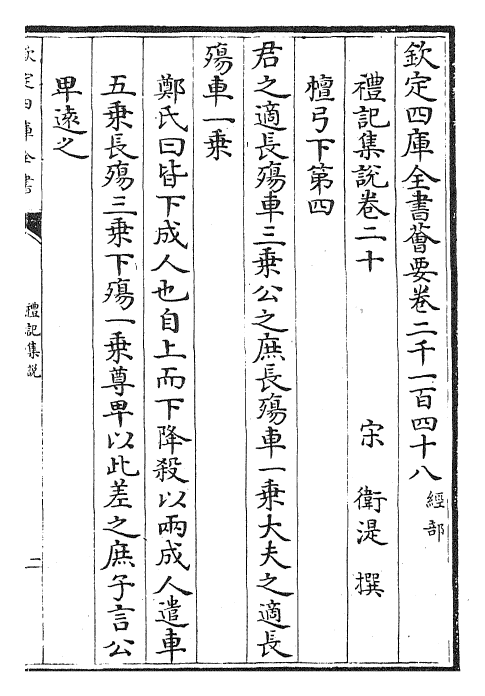 欽定四庫全書薈要卷二千一百四十八 經部
禮記集說卷二十 宋 衛湜 撰
檀弓下第四
君之適長殤車三乗公之庶長殤車一乗大夫之適長
殤車一乗
鄭氏曰皆下成人也自上而下降殺以兩成人遣車
五乗長殤三乗下殤一乗尊卑以此差之庶子言公
卑遠之
欽定四庫全書
禮記集說